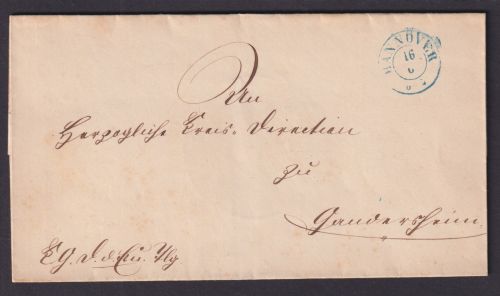 HANNOVER
16
6
An
Herzogliche Kreis-Direction
zu
Gandersheim